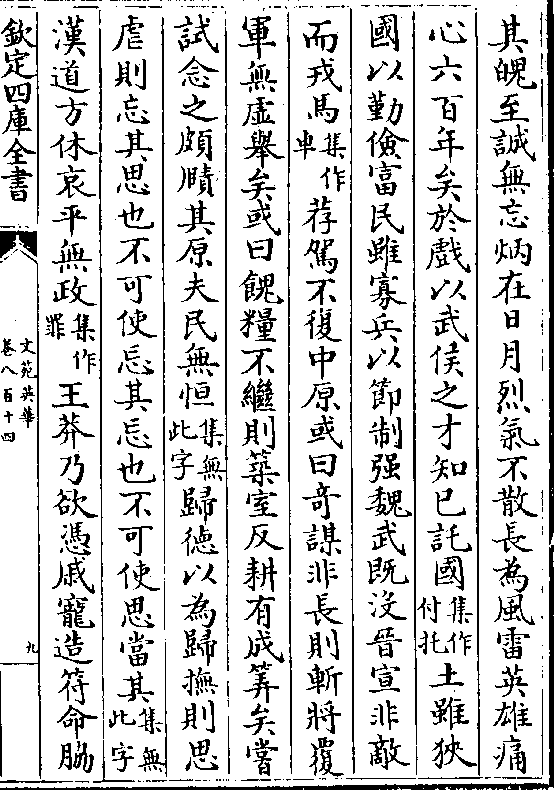 其魄至誠無忘炳在日月烈氣不散長為風雷英雄痛
心六百年矣於戲以武侯之才知已託國集作付托土雖狹
國以勤儉富民雖寡兵以節制强魏武既沒晉宣非敵
而戎馬集作車荐駕不復中原或曰竒謀非長則斬將覆
軍無虛舉矣或曰餽糧不繼則築室反耕有成筭矣嘗
試念之頗賾其原夫民無恒集無此字歸德以為歸撫則思
虐則忘其思也不可使忘其忘也不可使思當其集無此字
漢道方休哀平無政集作罪王莽乃欲憑戚寵造符命脇
欽定四庫全書
文苑英華
卷八百十四
九